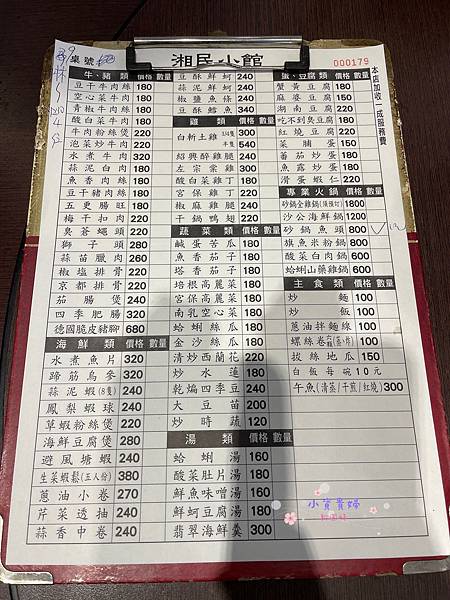 桌號
湘民小館
000179
本店加收一成服務費
牛、豬類 價格 數量
豆干牛肉絲 180
空心菜牛肉 180
青椒牛肉絲 180
酸白菜牛肉 180
牛肉粉絲煲 220
泡菜炒牛肉 220
水煮牛肉 320
蒜泥白肉 180
魚香肉絲 180
豆干豬肉絲 180
五更腸旺 180
梅干扣肉 220
臭菶蠅頭 220
獅子頭 280
蒜苗臘肉 260
椒塩排骨 220
京都排骨 220
茄腸煲 240
四季肥腸 320
德國脆皮豬腳 680
海鮮類 價格 數量
水煮魚片 320
蹄筋烏參 320
蒜泥蝦(8隻) 240
鳳梨蝦球 240
草蝦粉絲煲 220
海鮮豆腐煲 280
避風塘蝦 240
生菜蝦鬆(五人份) 380
蔥油小卷 270
芹菜透抽 240
蒜香中卷 240
豆酥鮮蚵 240
蒜泥鮮蚵 220
椒鹽魚條 240
豆酥鱈魚 340
雞類 價格 數量
白斬土雞 1/4隻 300
半隻 540
紹興醉雞腿 240
左宗棠雞 300
酸白菜雞丁 180
宮保雞丁 180
椒麻雞腿 240
干鍋鴨翅 220
蔬菜類 價格 數量
鹹蛋苦瓜 180
魚香茄子 180
塔香茄子 180
培根高麗菜 180
宮保高麗菜 180
南乳空心菜 180
蛤蜊絲瓜 180
金沙絲瓜 180
清炒西蘭花 220
炒水蓮 180
乾煸四季豆 240
大豆苗 200
炒時蔬 120
湯類 價格 數量
蛤蜊湯 160
酸菜肚片湯 180
鮮魚味噌湯 160
鮮蚵豆腐湯 180
翡翠海鮮羹 300
蛋、豆腐類 價格 數量
蟹黃豆腐 180
麻婆豆腐 150
湖南豆腐 180
吃不到臭豆腐 180
紅燒豆腐 220
菜脯蛋 150
蕃茄炒蛋 180
魚露炒蛋 180
滑蛋蝦仁 220
專業火鍋 價格 數量
砂鍋全雞鍋(須預訂) 1800
沙公海鮮鍋 1200
砂鍋魚頭 800
旗魚米粉鍋 800
酸菜白肉鍋 600
蛤蜊山藥雞鍋 600
主食類 價格 數量
炒麵 100
炒飯 100
蔥油拌麵線 100
螺絲卷 100
拔絲地瓜 150
白飯每碗10元
午魚(清蒸/干煎/紅燒) 300
小資貴婦